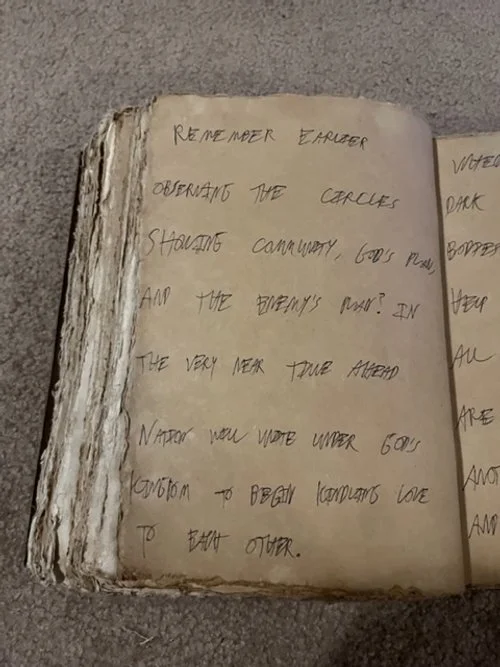 REMEMBER EARLIER
OBSERVING THE CIRCLES
SHOWING COMMUNITY, GOD'S PLAN,
AND THE ENEMY'S PLAN? IN
THE VERY NEAR TIME AHEAD
NATION WILL UNITE UNDER GOD'S
KINGDOM TO BEGIN KINDLING LOVE
TO EACH OTHER.
UNITED
DARK
BODIES
HELP
ALL
ARE
AND